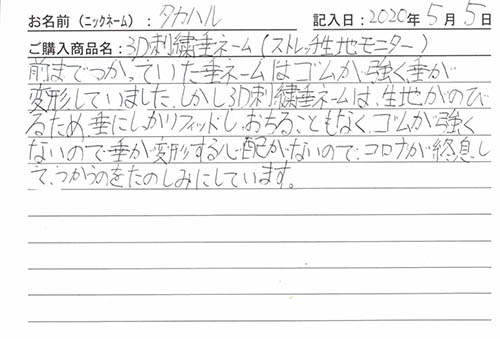 お名前（ニックネーム）：タカハル 記入日：2020年5月5日
ご購入商品名：3D刺繍垂ネーム（ストレッチ生地モニター）
前までつかっていた垂ネームはゴムが強く垂が
変形していました。しかし3D刺繍垂ネームは、生地がのび
るため、垂にしっかりフィットし、おちることもなく、ゴムが強く
ないので垂が変形する心配がないので、コロナが終息し
て、つかうのをたのしみにしています。